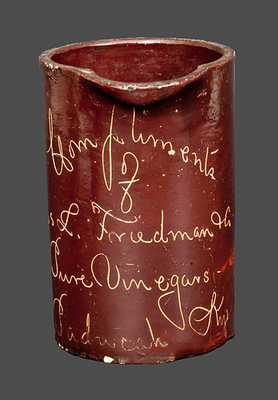 Compliments
of
s L. Friedman & Co
Pure Vinegars
Paducah Ky